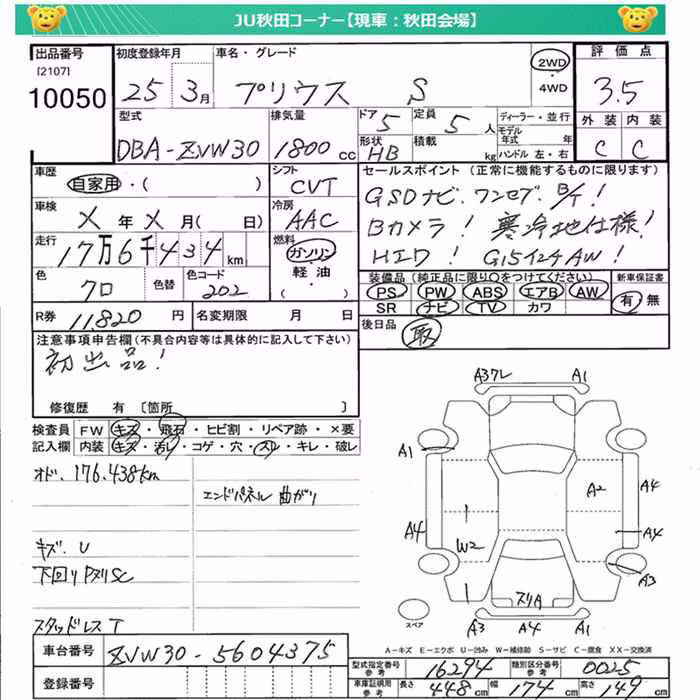 JU秋田コーナー【現車:秋田会場】
出品番号
[2107]
10050
初度登録年月
25 3月
車名・グレード
プリウス S
2WD
・
4WD
評価点
3.5
外装 内装
C C
型式
DBA-ZVW30
排気量
1800 cc
ドア
5
定員
5 人
形状
HB
積載
kg
ディーラー・並行
モデル
年式 年
ハンドル 左・右
車歴
自家用・( )
シフト
CVT
セールスポイント(正常に機能するものに限ります)
GSDナビ. ワンセグ. B/T!
Bカメラ! 寒冷地仕様!
HIDワ! G15インチAW!
車検
メ 年 メ 月( 日)
冷房
AAC
走行
17万6千434 km
燃料
ガソリン
軽油
・
( )
色
クロ
色替
色コード
202
装備品(純正品に限り○をつけてください)
PS PW ABS エアB AW
SR ナビ TV カワ
新車保証書
有 無
R券
11.820 円
名変期限 月 日
後日品
取
注意事項申告欄(不具合内容等は具体的に記入して下さい)
初出品!
修復歴 有 〔箇所 〕
検査員
記入欄
FW キズ・飛石・ヒビ割・リペア跡・×要
内装 キズ・汚レ・コゲ・穴・スレ・キレ・破レ
オド. 176.438km
エンドパネル 曲がり
キズ. U
下回りPヌリSC
スタッドレスT
A37レ A1
A1
A2 A4
A4 W2 A4
A3
スリA
スペア
A3 A4 A1
A-キズ E-エクボ U-凹み W-補修跡 S-サビ C-腐食 XX-交換済
車台番号
ZVW30-5604375
登録番号
型式指定番号
参考
16294
類別区分番号
参考
0025
車庫証明用
参考
長さ 448 cm
幅 174 cm
高さ 149 cm